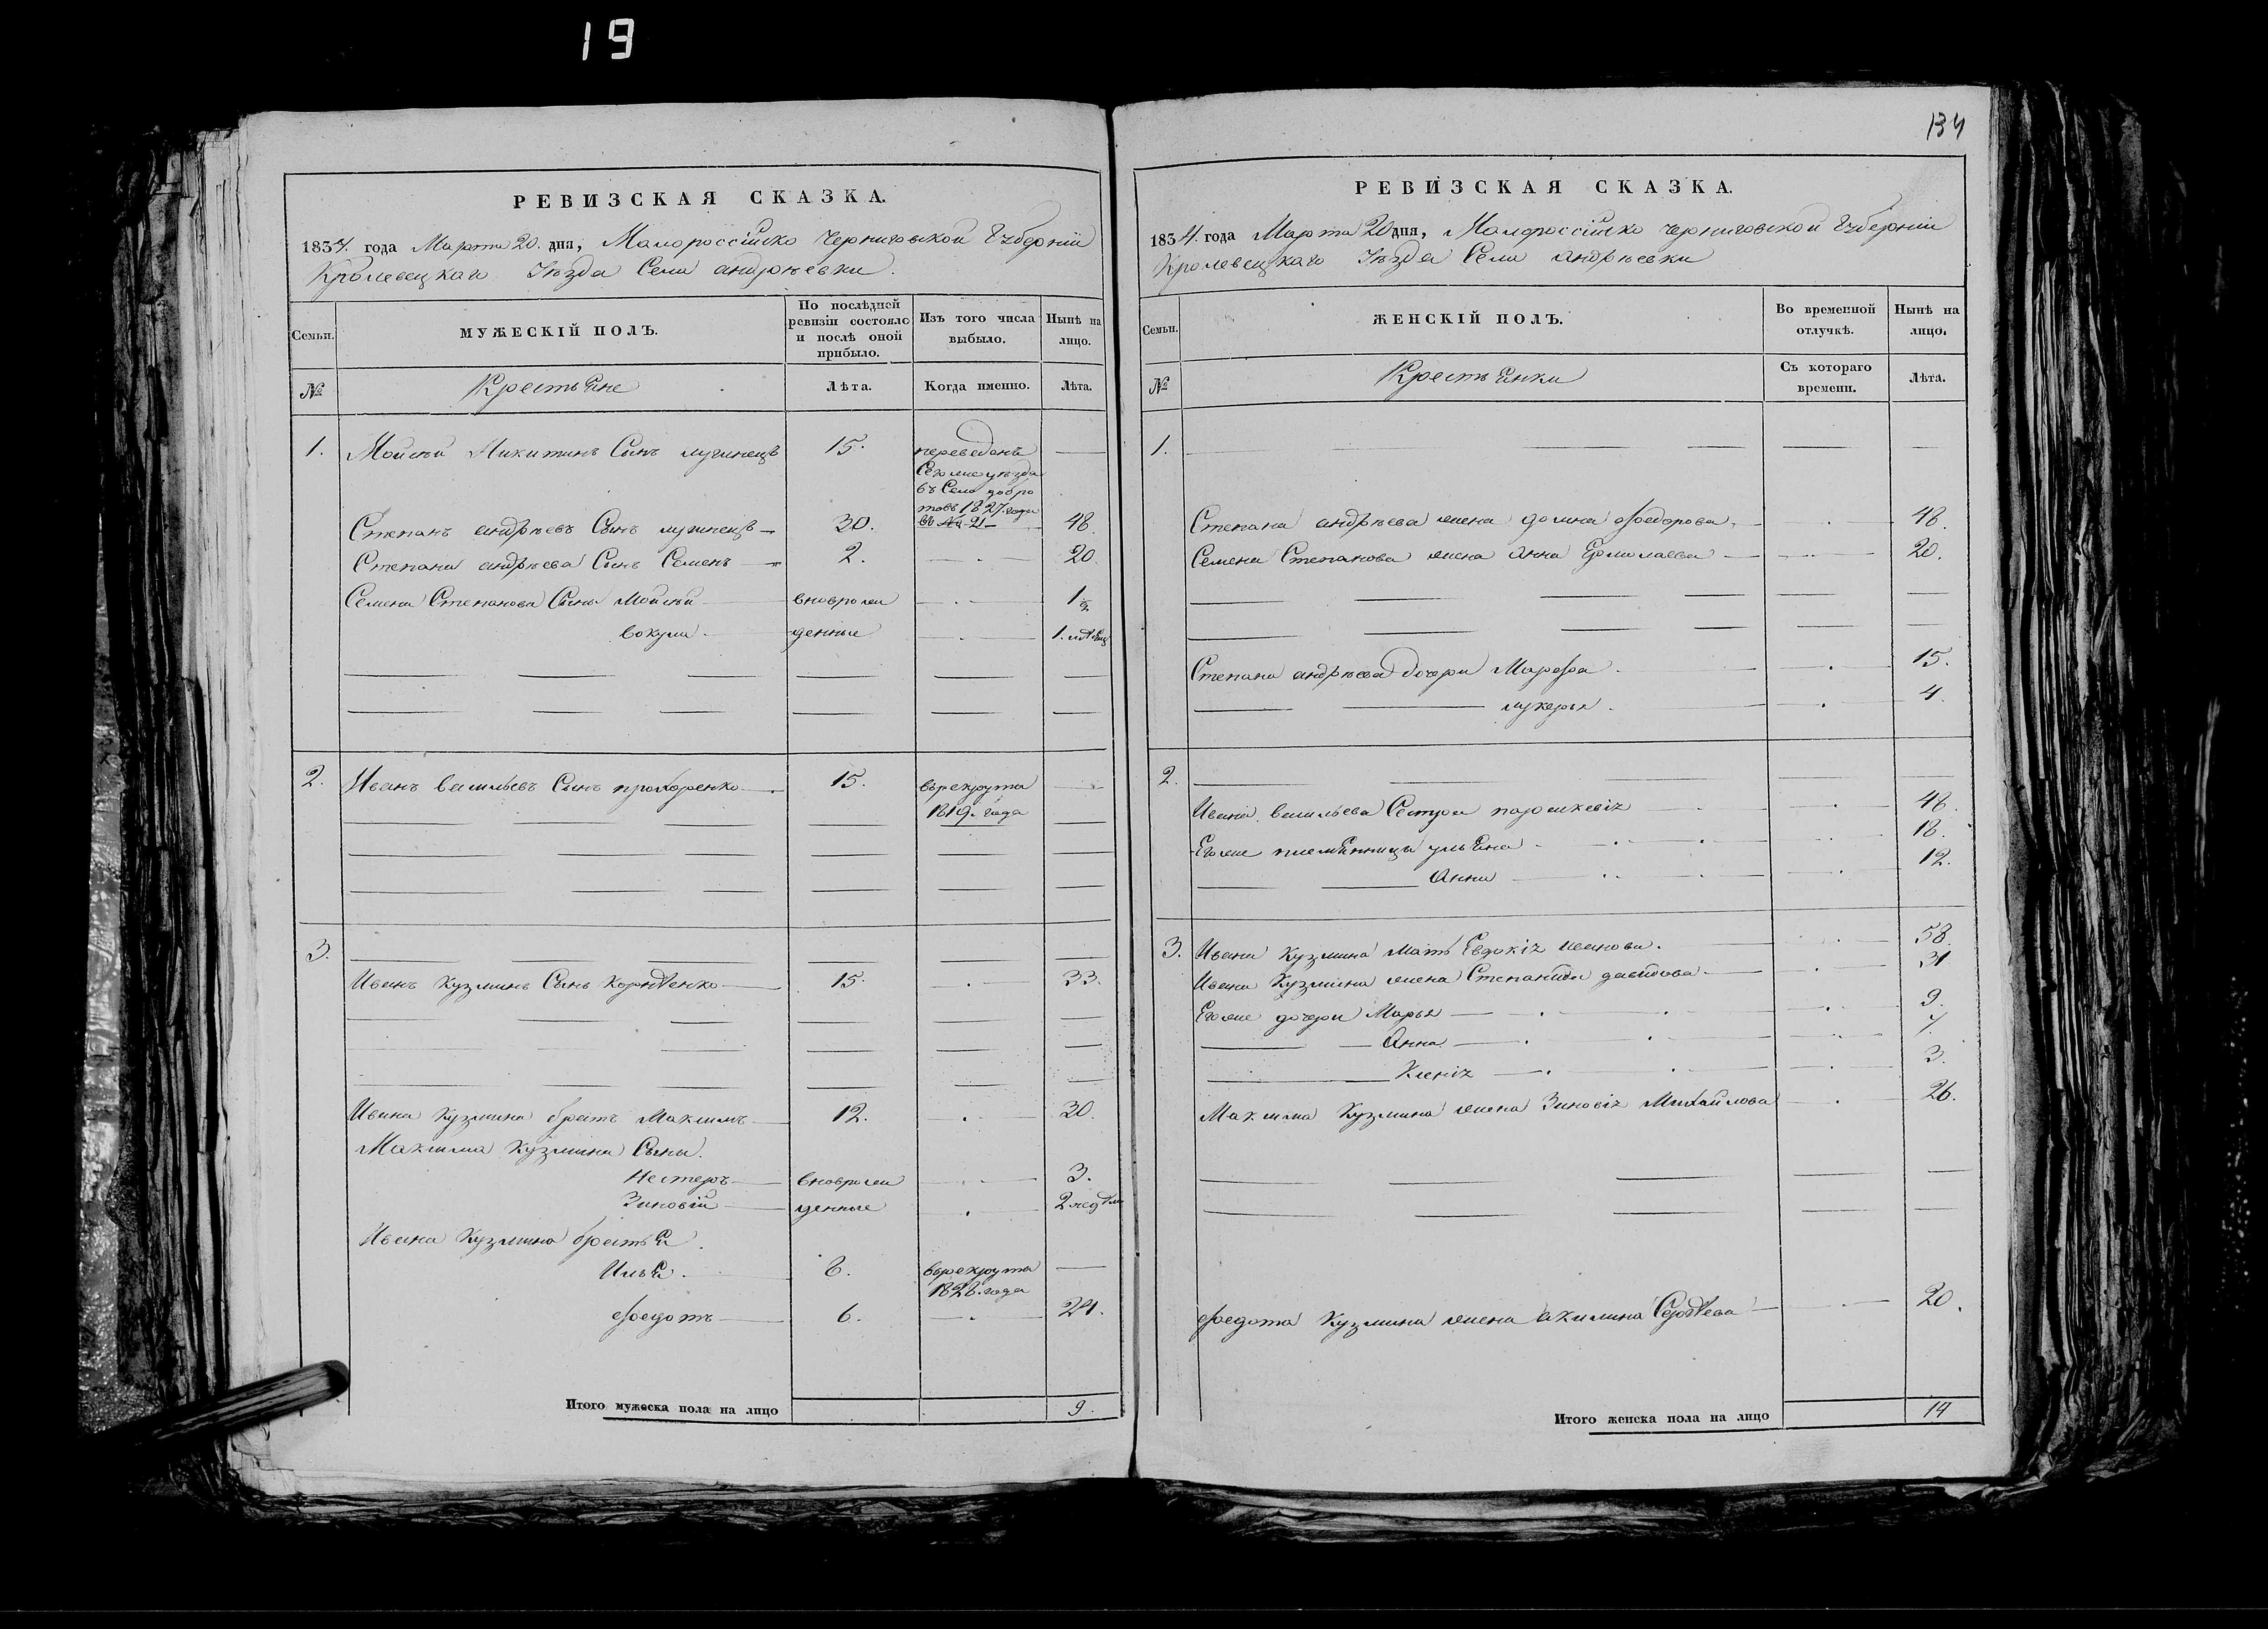 19
РЕВИЗСКАЯ СКАЗКА.
1834. года Марта 20. дня, Малороссійско Черниговской Губерніи
Кролевецкаго Уѣзда Села андрѣевки.
Семьи.
МУЖЕСКІЙ ПОЛЪ.
По послѣдней ревизіи состояло и послѣ оной прибыло.
Изъ того числа выбыло.
Нынѣ на лицо.
№
Крестьяне
Лѣта.
Когда именно.
Лѣта.
1. Мойсей Никитинъ Сынъ 15. переведенъ —
Сегоже уѣзда
въ Село добро
товъ 1827. года
въ № 21
Степанъ андрѣевъ Сынъ — 30. 48.
Степана андрѣева Сынъ Семенъ — 2. — 20.
Семена Степанова Сыны Мойсей вноврож — 1/2
вокула денные — 1.
2. Иванъ васильевъ Сынъ прохоренко 15. въ рекрута —
1819. года
3.
Иванъ Кузминъ Сынъ 15. — 33.
Ивана Кузмина братъ Максимъ 12. — 30.
Максима Кузмина Сыны.
Нестеръ вноврож — 3.
Зиновій денные — 2 недѣли
Ивана Кузмина братья.
Илья. 8. въ рекрута —
1828. года
Федотъ 6. — 24.
Итого мужеска пола на лицо 9.
134
РЕВИЗСКАЯ СКАЗКА.
1834. года Марта 20 дня, Малороссійско черниговской Губерніи
Кролевецкаго Уѣзда Села андрѣевки
Семьи.
ЖЕНСКІЙ ПОЛЪ.
Во временной отлучкѣ.
Нынѣ на лицо.
№
Крестьянки
Съ котораго времени.
Лѣта.
1.
Степана андрѣева жена домна Федорова. 48.
Семена Степанова жена Анна Ермолаева 20.
Степана андрѣева дочери Марфа 15.
лукерья. 4.
2.
Ивана васильева Сестра 48.
Егоже племянницы ульяна 18.
Анна 12.
3. Ивана Кузмина Мать Евдокія иванова. 58.
Ивана Кузмина жена Степанида давидова 31
Егоже дочери Марья 9.
Анна 7.
Ксенія 3.
Максима Кузмина жена Зиновія Михайлова 26.
Федота Кузмина жена акилина Сергѣева 20.
Итого женска пола на лицо 14